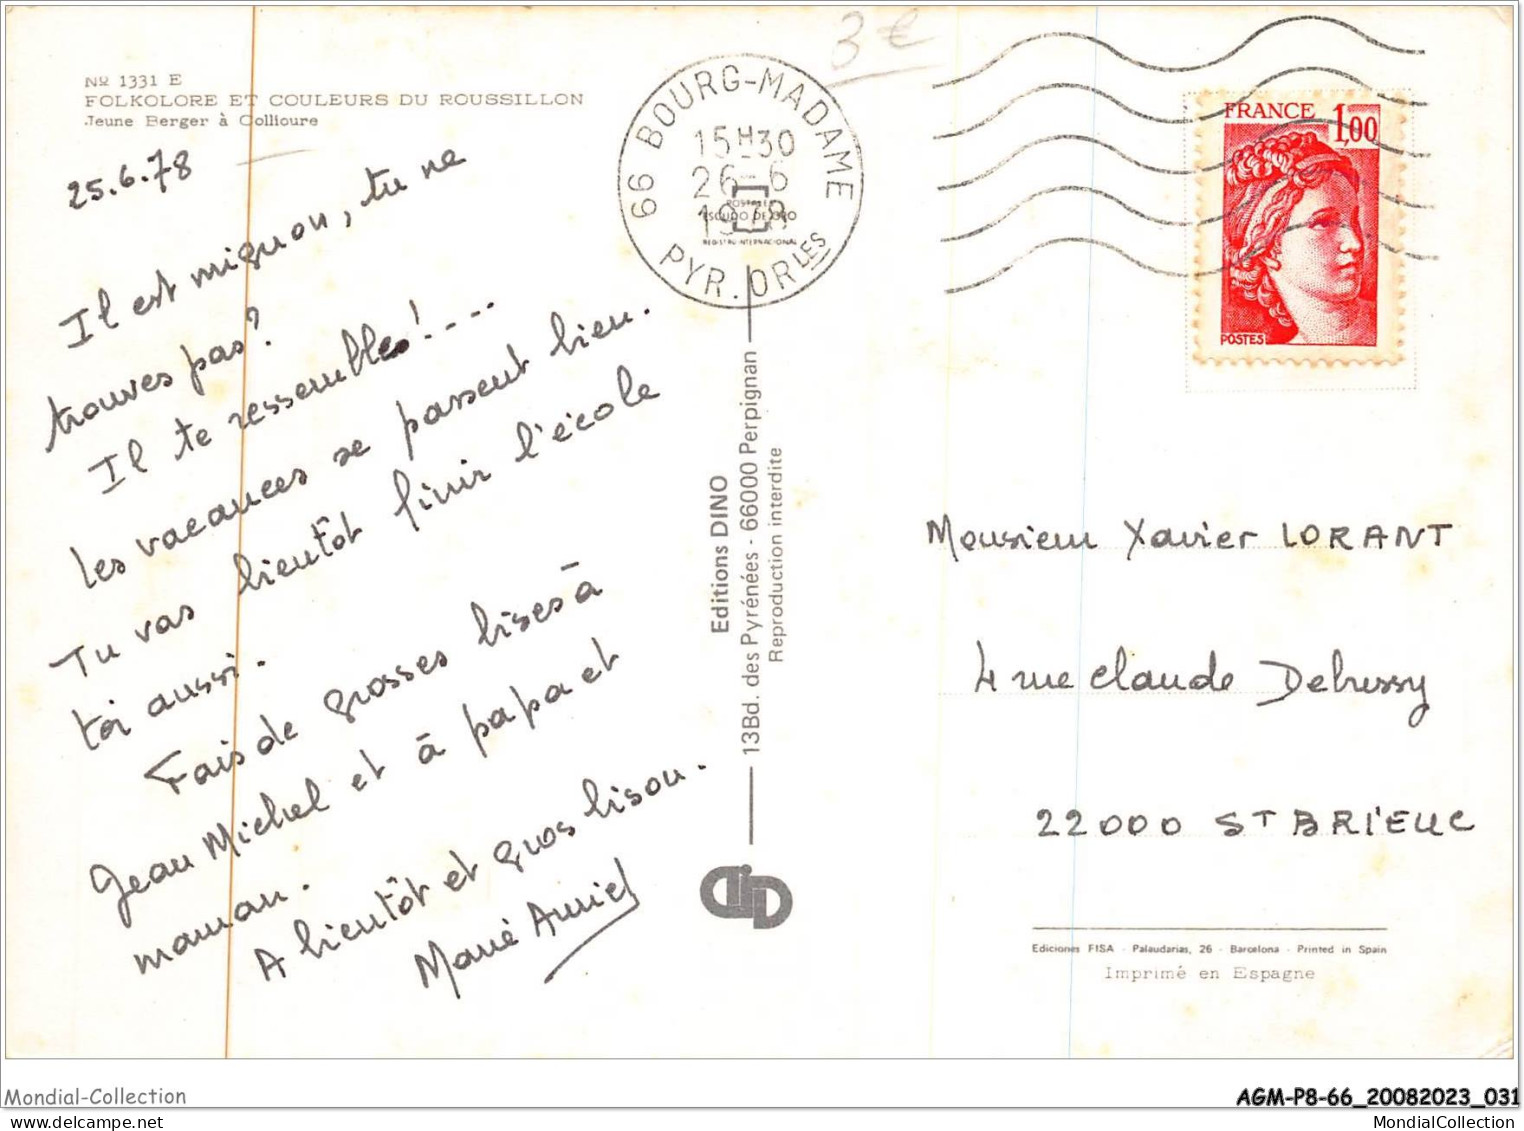 3 €
Nº 1331 E
FOLKOLORE ET COULEURS DU ROUSSILLON
Jeune Berger à Collioure
25.6.78
Il est mignon, tu ne
trouves pas?
Il te ressembles!----
les vacances se passent bien.
Tu vas bientôt finir l'école
toi aussi.
Fais de grosses bises à
Jean Michel et à papa et
maman.
A bientôt et gros bisou.
Marie Amiel
66 BOURG-MADAME
15H30
26-6
1978
PYR. ORLES
POSTALES
ESCUDO DE ORO
REGISTRO INTERNACIONAL
Editions DINO
13Bd. des Pyrénées - 66000 Perpignan
Reproduction interdite
DiD
FRANCE 1,00
POSTES
Monsieur Xavier LORANT
4 rue Claude Debussy
22000 ST BRIEUC
Ediciones FISA - Palaudarias, 26 - Barcelona - Printed in Spain
Imprimé en Espagne
Mondial-Collection
AGM-P8-66_20082023_031
MondialCollection